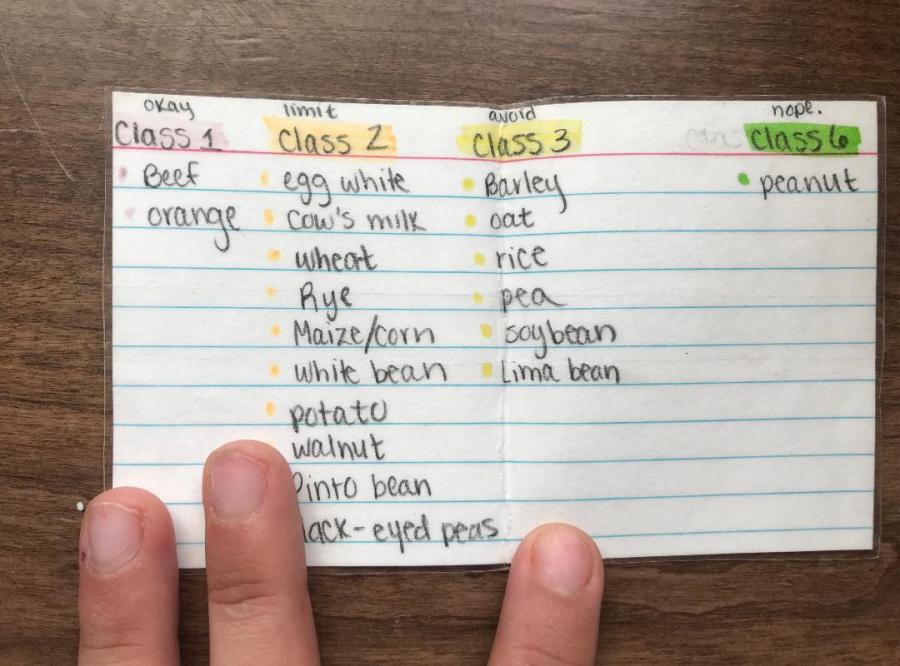 okay
Class 1
Beef
orange
limit
Class 2
egg white
Cow's milk
wheat
Rye
Maize/corn
white bean
potato
walnut
Pinto bean
lack-eyed peas
avoid
Class 3
Barley
oat
rice
pea
soybean
Lima bean
nope.
Class 6
peanut